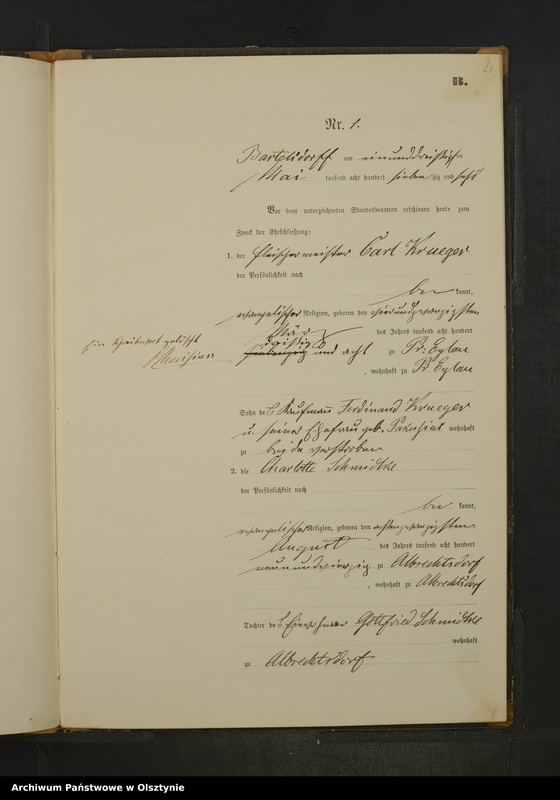 2
B.
Nr. 1.
Bartelsdorff am einunddreißigsten
Mai tausend acht hundert siebenzig und sechs
Vor dem unterzeichneten Standesbeamten erschienen heute zum
Zweck der Eheschließung:
1. der Fleischermeister Carl Krueger
der Persönlichkeit nach
be kannt,
evangelischer Religion, geboren den vierundzwanzigsten
März des Jahres tausend acht hundert
dreißig
und acht zu Pr. Eylau
, wohnhaft zu Pr Eylau
Ein Schreibwort gelöscht
Sohn des Kaufmann Ferdinand Krueger
u. seiner Ehefrau geb. wohnhaft
zu beide verstorben
2. die Charlotte Schmidtke
der Persönlichkeit nach
be kannt,
evangelischer Religion, geboren den
August des Jahres tausend acht hundert
neunundvierzig zu Albrechtsdorf
, wohnhaft zu Albrechtsdorf
Tochter des Gottfried Schmidtke
wohnhaft
zu Albrechtsdorf
Archiwum Państwowe w Olsztynie